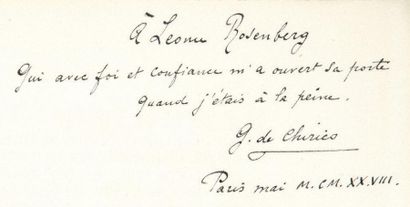 À Leonce Rosenberg
Qui avec foi et confiance m'a ouvert sa porte
quand j'étais à la peine.
G. de Chirico
Paris mai M.CM.XX.VIII.